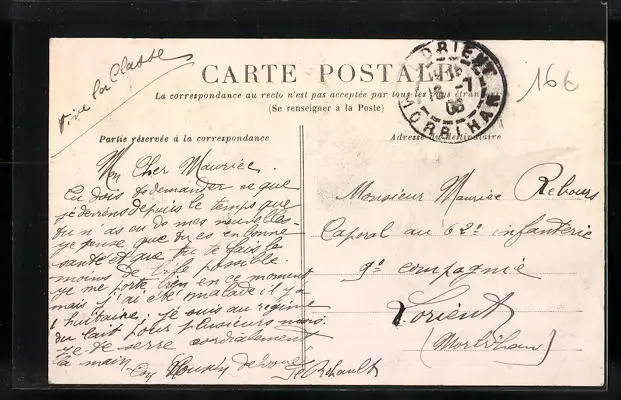 Vive la Classe
CARTE POSTALE
La correspondance au recto n'est pas acceptée par tous les pays étrangers
(Se renseigner à la Poste)
LORIENT
MORBIHAN
16€
Partie réservée à la correspondance
Adresse du destinataire
Mon Cher Maurice.
Tu dois demander ce que
je deviens depuis le temps que
tu n'as eu de mes nouvelles
je pense que tu es en bonne
santé et que tu te fais le
moins de bile possible.
je me porte bien en ce moment
mais j'ai été malade il y a
1 huitaine, je suis au régime
du lait pour plusieurs mois.
je te serre cordialement
la main
Ton
Monsieur Maurice Rebours
Caporal au 62e infanterie
9e compagnie
Lorient
(Morbihan)